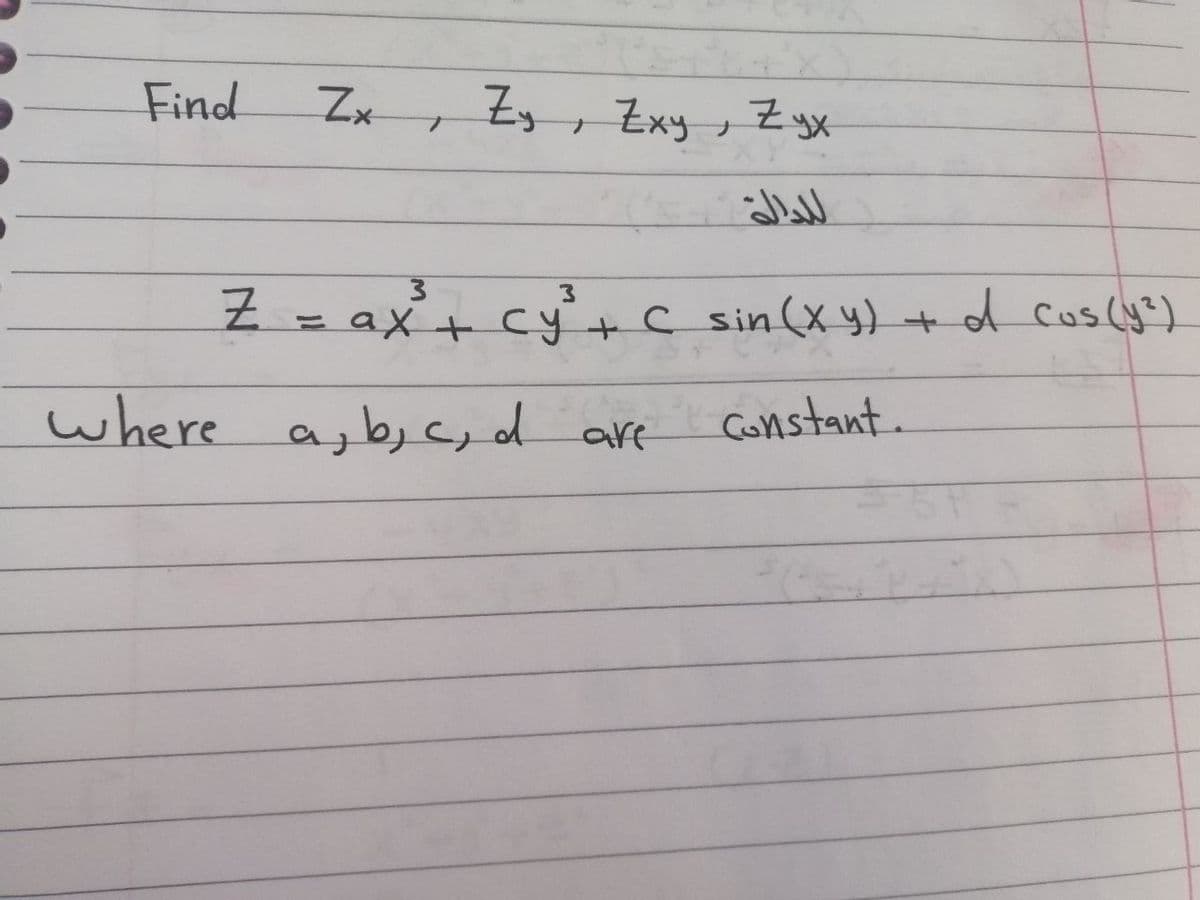 Find Zx , Zy , Zxy , Zyx
للدالة
Z = ax³ + cy³ + c sin(xy) + d cos(y²)
where a, b, c, d are constant.